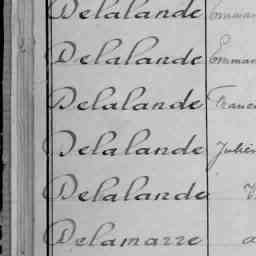 Delalande Emman
Delalande Emman
Delalande Franc
Delalande Julie
Delalande V
Delamarre a